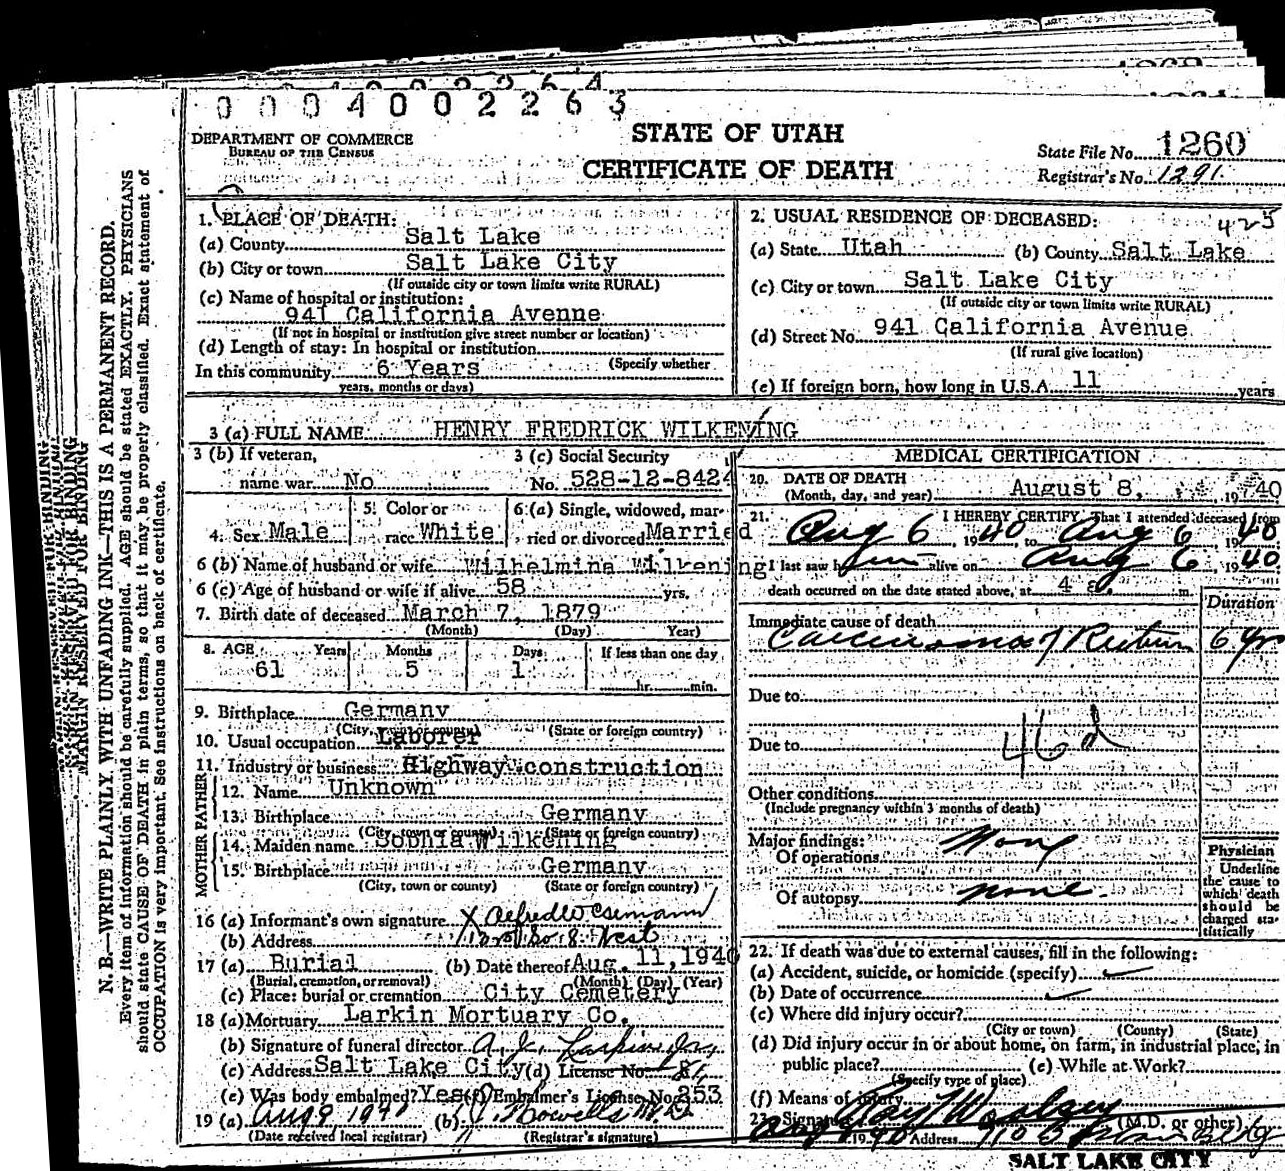 0 0 0 4 0 0 2 2 6 3
DEPARTMENT OF COMMERCE
BUREAU OF THE CENSUS
STATE OF UTAH
CERTIFICATE OF DEATH
State File No. 1260
Registrar's No. 1291
1. PLACE OF DEATH:
(a) County Salt Lake
(b) City or town Salt Lake City
(If outside city or town limits write RURAL)
(c) Name of hospital or institution:
941 California Avenne
(If not in hospital or institution give street number or location)
(d) Length of stay: In hospital or institution
(Specify whether
In this community 6 Years
years, months or days)
2. USUAL RESIDENCE OF DECEASED: 425
(a) State Utah (b) County Salt Lake
(c) City or town Salt Lake City
(If outside city or town limits write RURAL)
(d) Street No. 941 California Avenue
(If rural give location)
(e) If foreign born, how long in U.S.A. 11 years
3 (a) FULL NAME HENRY FREDRICK WILKENING
3 (b) If veteran, name war No
3 (c) Social Security No. 528-12-8424
4. Sex Male
5. Color or race White
6 (a) Single, widowed, married or divorced Married
6 (b) Name of husband or wife Wilhelmina Wilkening
6 (c) Age of husband or wife if alive 58 yrs.
7. Birth date of deceased March 7, 1879
(Month) (Day) Year)
8. AGE Years Months Days If less than one day
61 5 1 hr. min.
9. Birthplace Germany
(City, town or county) (State or foreign country)
10. Usual occupation Laborer
11. Industry or business Highway construction
FATHER
12. Name Unknown
13. Birthplace Germany
(City, town or county) (State or foreign country)
MOTHER
14. Maiden name Sophia Wilkening
15. Birthplace Germany
(City, town or county) (State or foreign country)
16 (a) Informant's own signature X Alfred
(b) Address So 8 West
17 (a) Burial (b) Date thereof Aug. 11, 1940
(Burial, cremation, or removal) (Month) (Day) (Year)
(c) Place: burial or cremation City Cemetery
18 (a) Mortuary Larkin Mortuary Co.
(b) Signature of funeral director A. J. Larkin
(c) Address Salt Lake City (d) License No. 81
(e) Was body embalmed? Yes (f) Embalmer's License No. 353
19 (a) Aug 9 1940 (b)
(Date received local registrar) (Registrar's signature)
MEDICAL CERTIFICATION
20. DATE OF DEATH
(Month, day, and year) August 8, 1940
21. I HEREBY CERTIFY, That I attended deceased from
Aug 6, 1940, to Aug 6, 1940.
I last saw him alive on Aug 6, 1940,
death occurred on the date stated above, at 4 a. m.
Duration
Immediate cause of death
Carcinoma of Rectum 6 yrs
Due to
Due to 46d
Other conditions
(Include pregnancy within 3 months of death)
Major findings:
Of operations None
Of autopsy none
Physician
Underline
the cause to
which death
should be
charged sta-
tistically
22. If death was due to external causes, fill in the following:
(a) Accident, suicide, or homicide (specify)
(b) Date of occurrence
(c) Where did injury occur?
(City or town) (County) (State)
(d) Did injury occur in or about home, on farm, in industrial place, in
public place? (e) While at Work?
(Specify type of place)
(f) Means of injury
23. Signature Ray Woolsey (M.D. or other)
Address
SALT LAKE CITY
MARGIN RESERVED FOR BINDING
N. B.—WRITE PLAINLY, WITH UNFADING INK—THIS IS A PERMANENT RECORD.
Every item of information should be carefully supplied. AGE should be stated EXACTLY. PHYSICIANS
should state CAUSE OF DEATH in plain terms, so that it may be properly classified. Exact statement of
OCCUPATION is very important. See instructions on back of certificate.